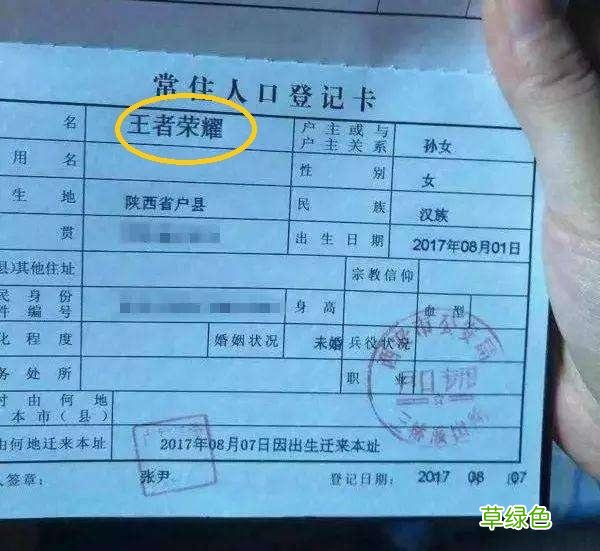 常住人口登记卡
名 王者荣耀 户主或与户主关系 孙女
用名 性别 女
生地 陕西省户县 民族 汉族
贯 出生日期 2017年08月01日
县)其他住址 宗教信仰
民身份
件编号 身高 血型
化程度 婚姻状况 未婚 兵役状况
务处所 职业
时由何地
本市(县)
由何地迁来本址 2017年08月07日因出生迁来本址
人签章: 张尹 登记日期: 2017 08 07
草绿色